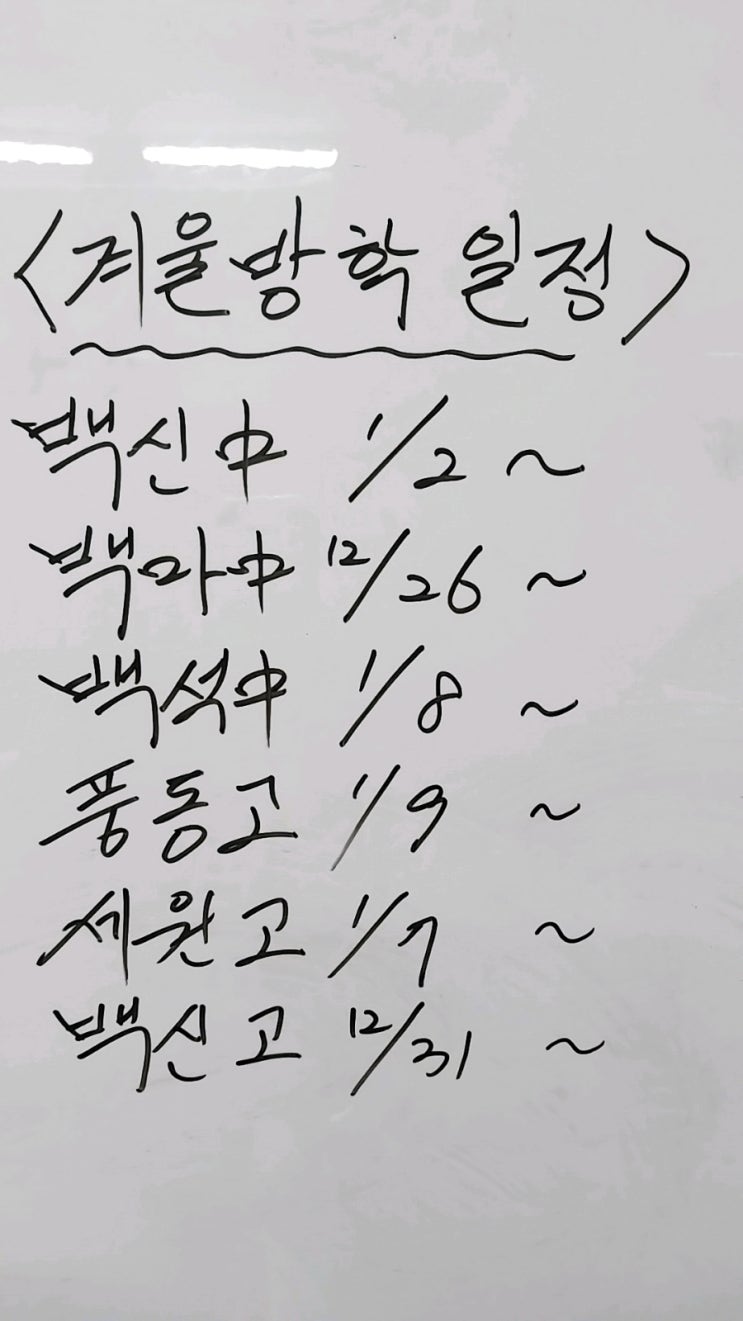 <겨울방학 일정>
백신中 1/2 ~
백마中 12/26 ~
백석中 1/8 ~
풍동고 1/9 ~
세원고 1/7 ~
백신고 12/31 ~